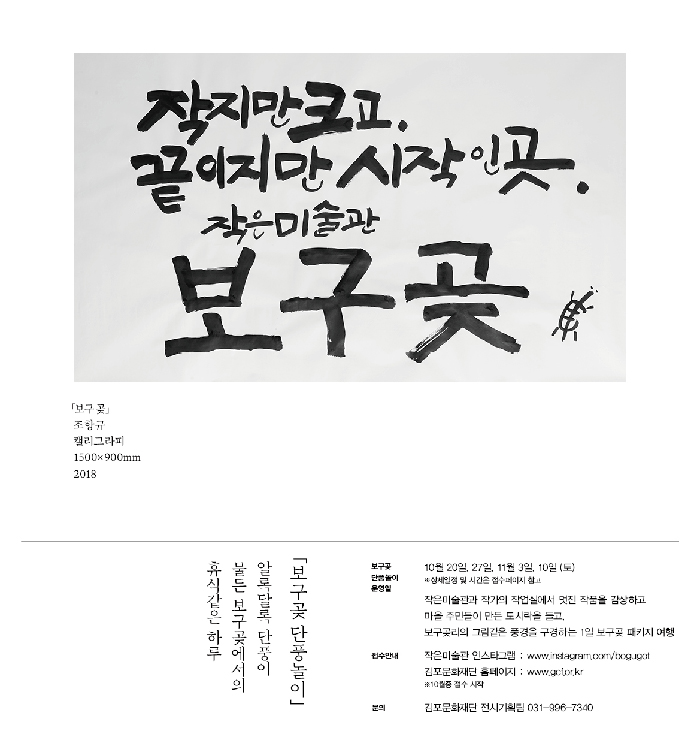 작지만크고.
끝이지만 시작인곳.
작은미술관
보구곶
「보구 곶」
조항규
캘리그라피
1500×900mm
2018
「보구곶 단풍놀이」
알록달록 단풍이
물든 보구곶에서의
휴식같은 하루
보구곶
단풍놀이
운영일
10월 20일, 27일, 11월 3일, 10일 (토)
※상세일정 및 시간은 접수페이지 참고
작은미술관과 작가의 작업실에서 멋진 작품을 감상하고
마을 주민들이 만든 도시락을 들고,
보구곶리의 그림같은 풍경을 구경하는 1일 보구곶 패키지 여행
접수안내
작은미술관 인스타그램 : www.instagram.com/bogugot
김포문화재단 홈페이지 : www.gcf.or.kr
※10월중 접수 시작
문의
김포문화재단 전시기획팀 031-996-7340